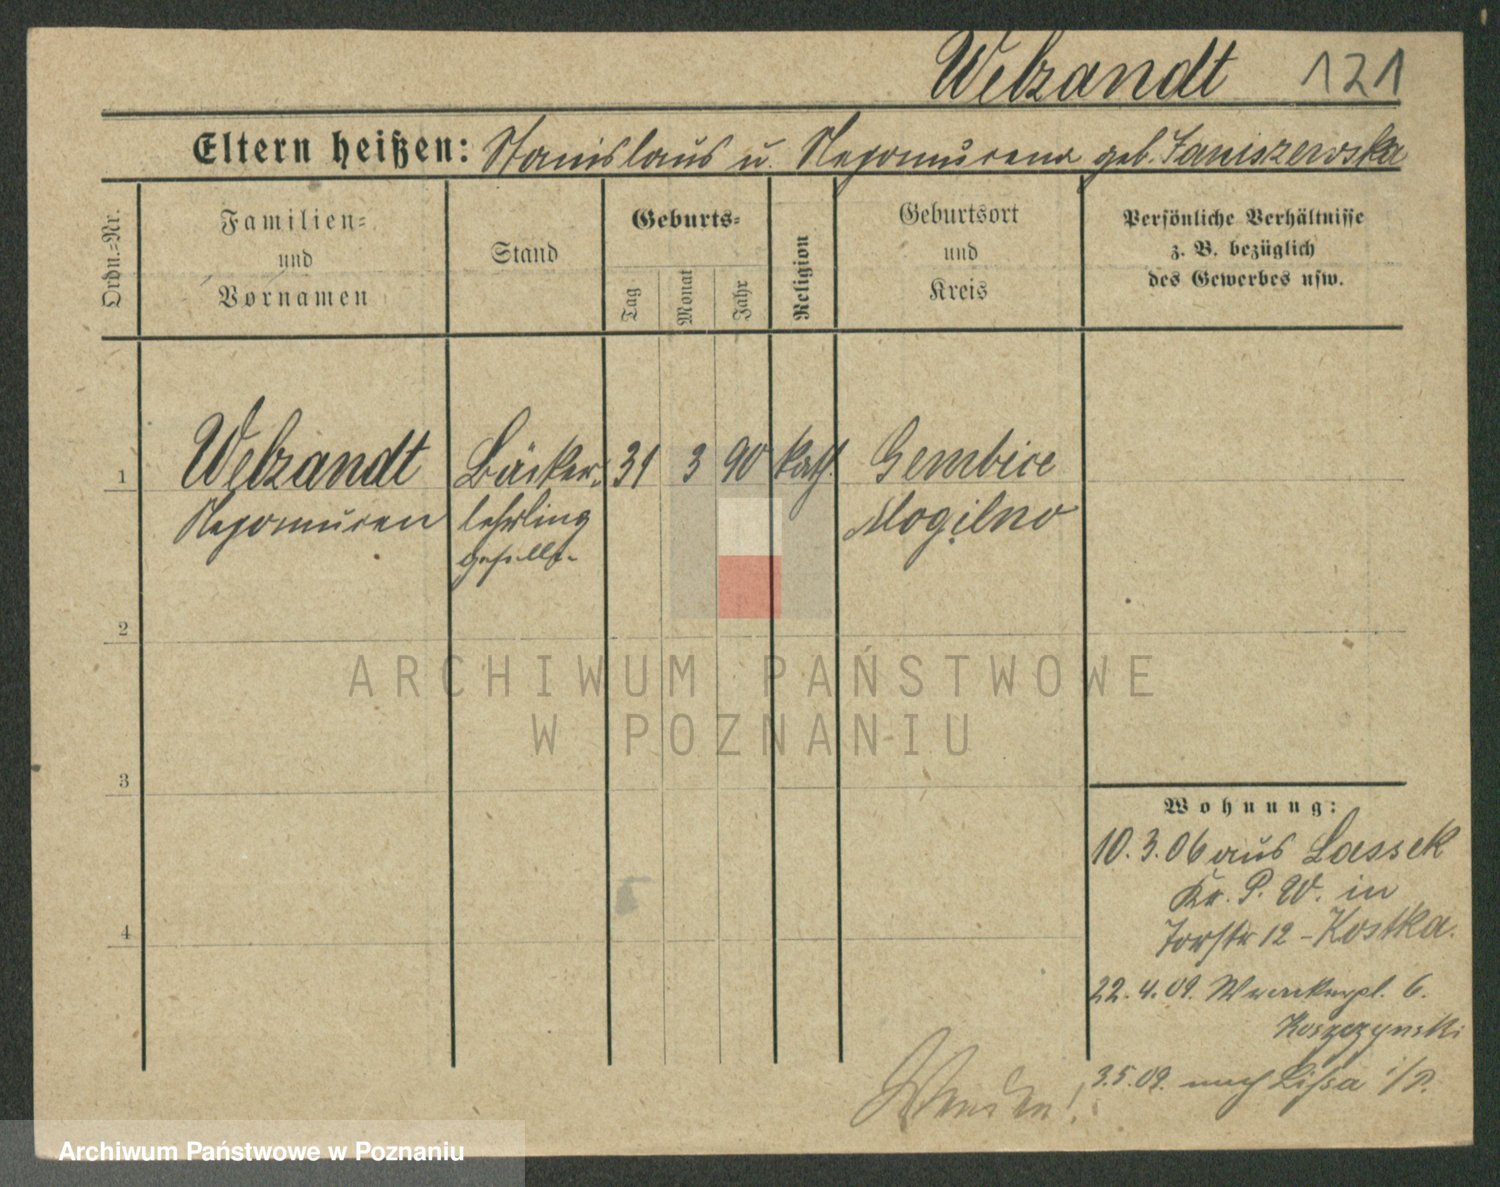 Welzandt 121
Eltern heißen: Stanislaus u. Nepomucena geb. Janiszewska
Ordn.=Nr.
Familien=
und
Vornamen
Stand
Geburts=
Tag
Monat
Jahr
Religion
Geburtsort
und
Kreis
Persönliche Verhältnisse
z. B. bezüglich
des Gewerbes usw.
1 Welzandt Bäcker- 31 3 90 kath. Gembice
Nepomucen lehrling Mogilno
geselle
2
ARCHIWUM PAŃSTWOWE
W POZNANIU
3
Wohnung:
10.3.06 aus Lassek
Kr. P. W. in
Torstr 12 - Kostka.
4
22.4.09. pl. 6.
Koszczynski
3.5.09. nach Lissa i/P.
Wenden!
Archiwum Państwowe w Poznaniu